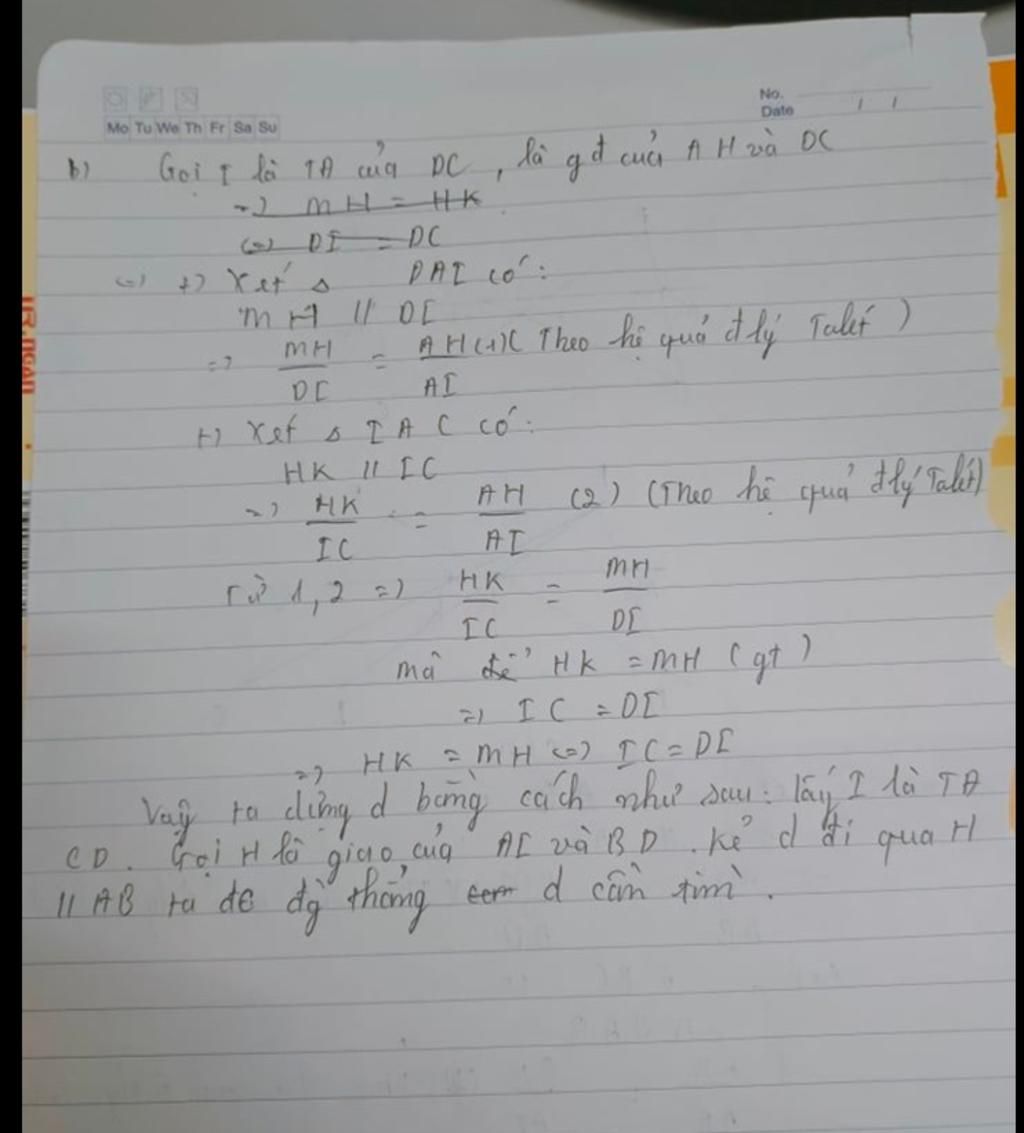 No.
Date / /
Mo Tu We Th Fr Sa Su
b) Gọi I là TĐ của DC, là gđ của AH và DC
=> MH = HK
<=> DI = DC
=> +) Xét Δ DAI có:
MH // DI
=> MH/DI = AH/AI (1) (Theo hệ quả đlý Talét)
+) Xét Δ IAC có:
HK // IC
=> HK/IC = AH/AI (2) (Theo hệ quả đlý Talét)
Từ 1, 2 => HK/IC = MH/DI
mà để HK = MH (gt)
=> IC = DI
=> HK = MH <=> IC = DI
Vậy ta dựng d bằng cách như sau: lấy I là TĐ
CD. Gọi H là giao của AI và BD. Kẻ d đi qua H
// AB ta đc đg thẳng d cần tìm.